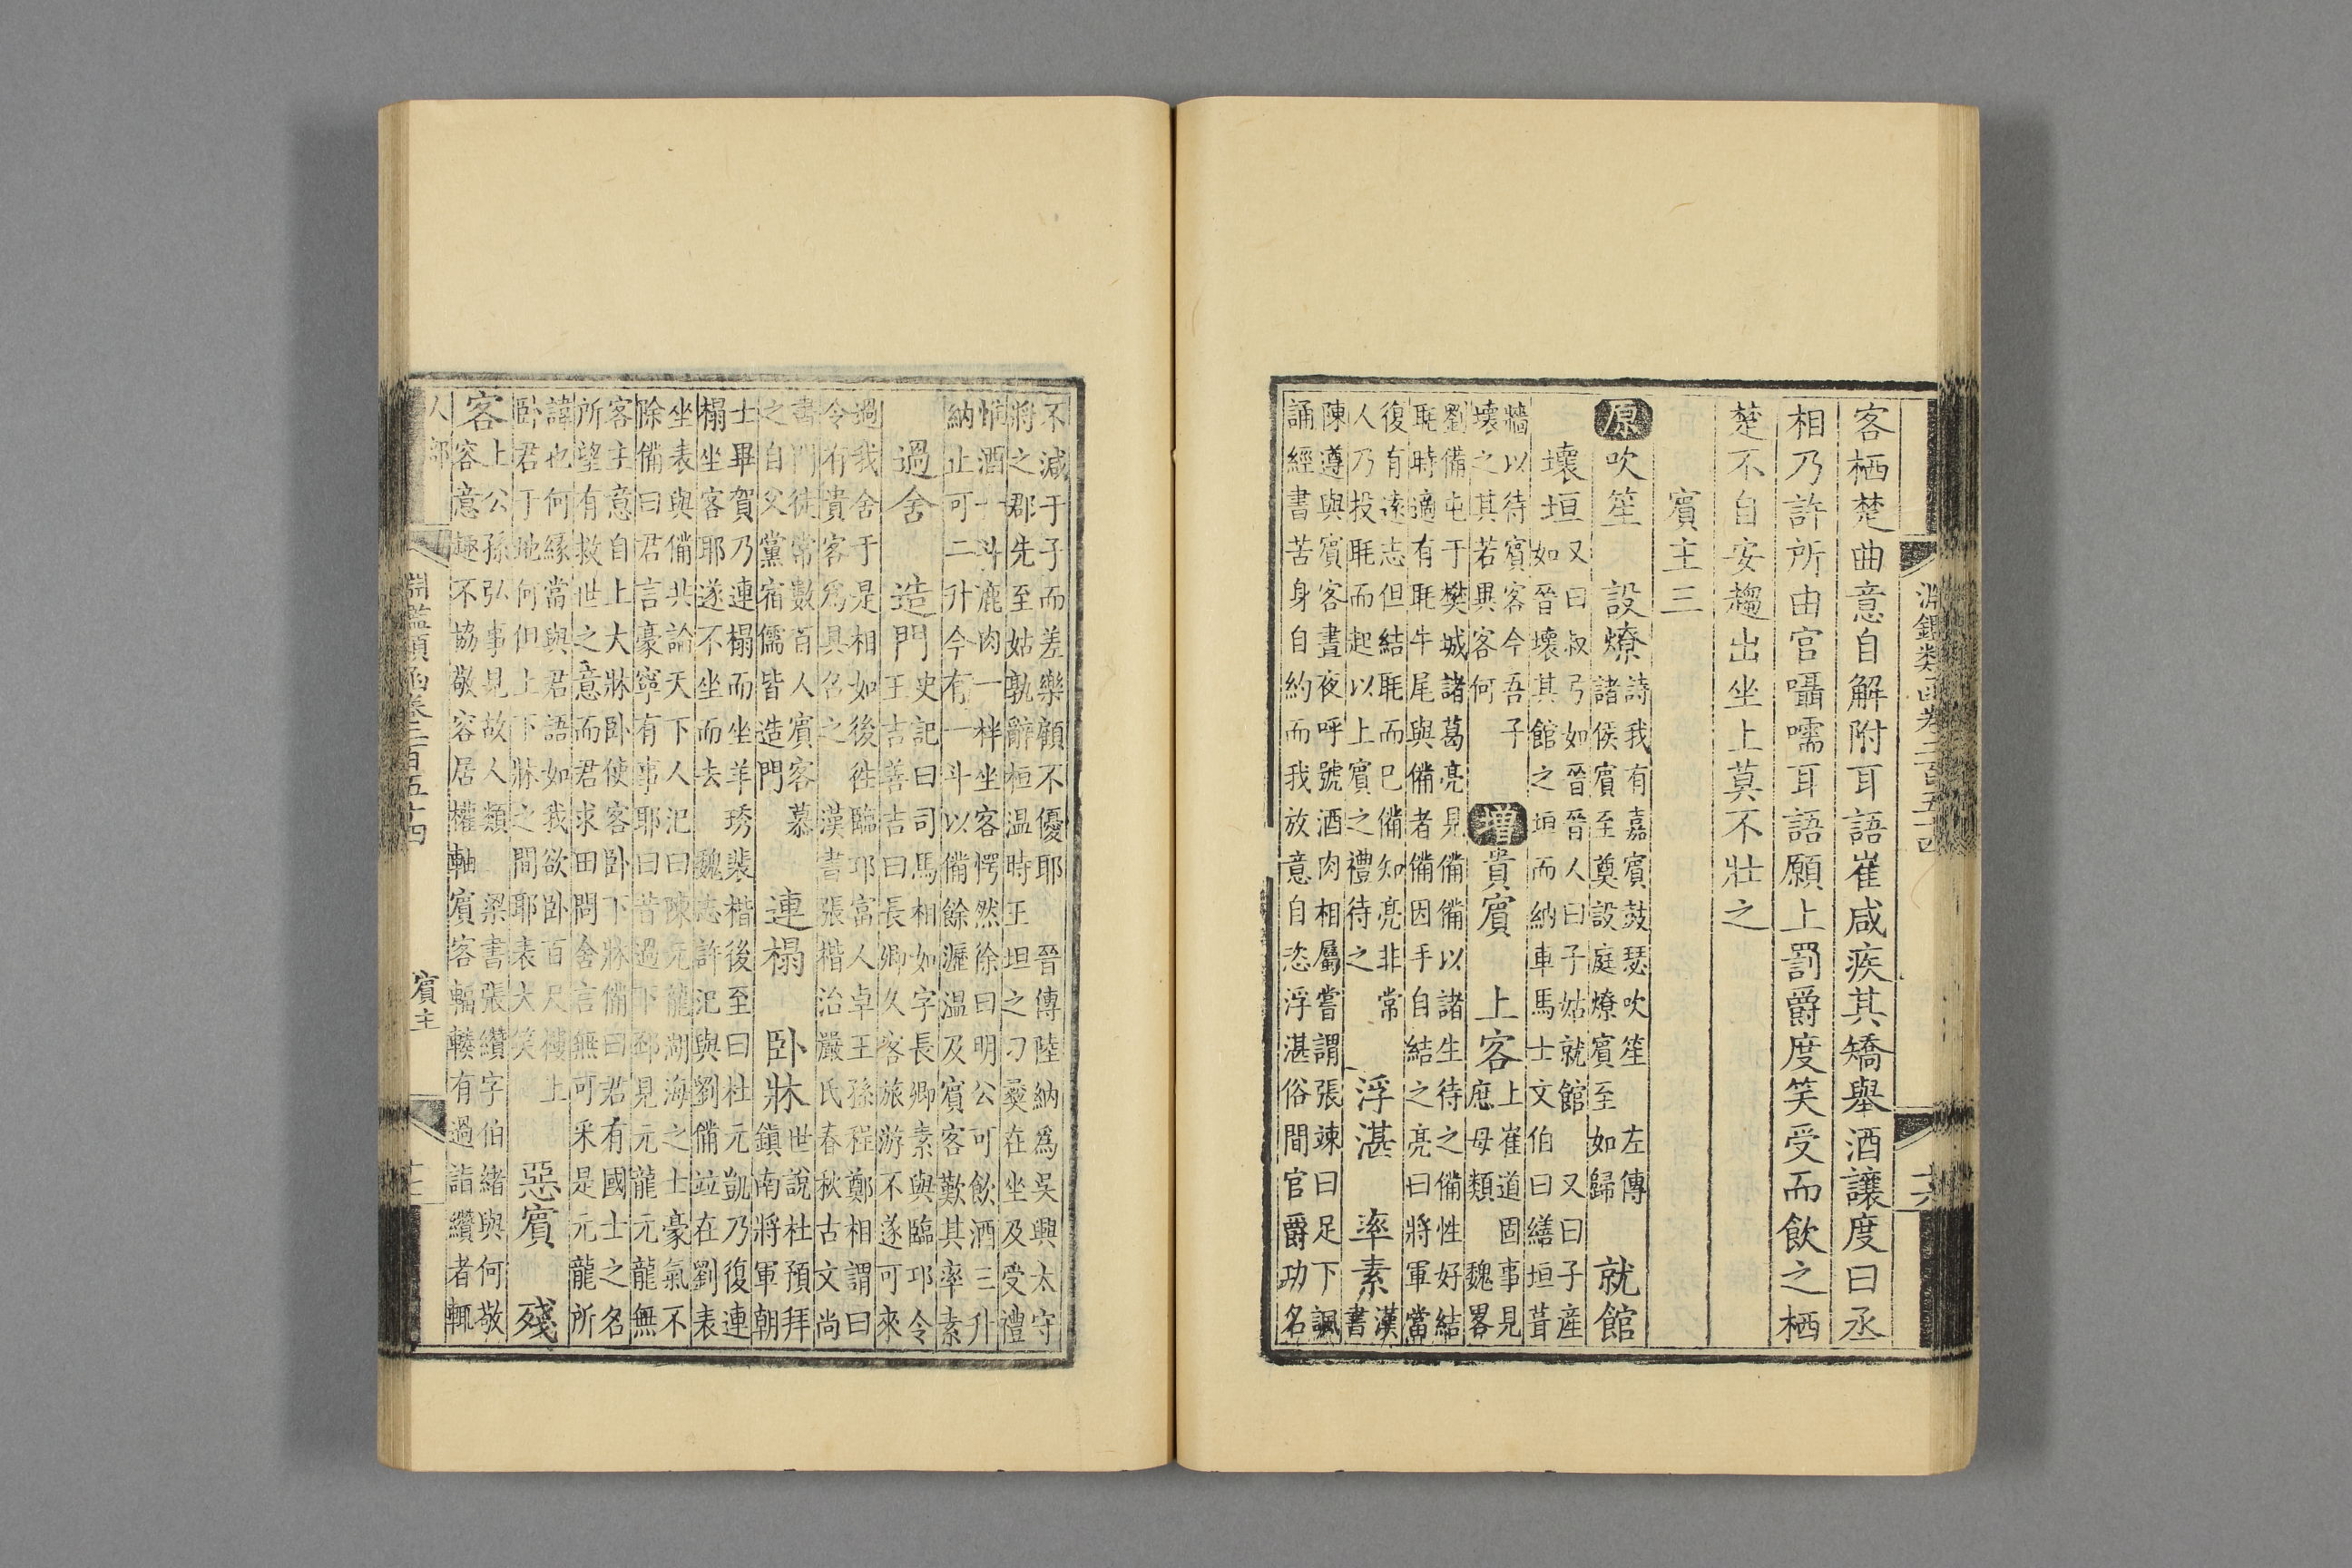 淵鑑類函卷二百五十四
客栖楚曲意自解附耳語崔咸疾其矯舉酒讓度曰丞
相乃許所由官囁嚅耳語願上罰爵度笑受而飲之栖
楚不自安趨出坐上莫不壯之
賓主三
原吹笙 設燎
詩我有嘉賓鼓瑟吹笙 左傳
諸侯賓至奠設庭燎賓至如歸
就館
壞垣
又曰叔弓如晉晉人曰子姑就館 又曰子產
如晉壞其館之垣而納車馬士文伯曰繕垣葺
牆以待賓客今吾子
壞之其若異客何
增貴賓 上客
上崔道固事見
庶母類 魏畧
劉備屯于樊城諸葛亮見備備以諸生待之備性好結
毦時適有毦牛尾與備者備因手自結之亮曰將軍當
復有遠志但結毦而已備知亮非常
人乃投毦而起以上賓之禮待之
浮湛 率素
漢
書
陳遵與賓客晝夜呼號酒肉相屬嘗謂張竦曰足下諷
誦經書苦身自約而我放意自恣浮湛俗間官爵功名
不減于子而差樂顧不優耶 晉傳陸納為吳興太守
將之郡先至姑孰辭桓温時王坦之刁彛在坐及受禮
惟酒一斗鹿肉一柈坐客愕然徐曰明公可飲酒三升
納止可二升今有一斗以備餘瀝温及賓客歎其率素
過舍 造門
史記曰司馬相如字長卿素與臨邛令
王吉善吉曰長卿久客旅游不遂可來
過我舍于是相如後徃臨邛富人卓王孫程鄭相謂曰
令有貴客為具召之 漢書張楷治嚴氏春秋古文尚
書門徒常數百人賓客慕
之自父黨宿儒皆造門
連榻 卧牀
世說杜預拜
鎮南將軍朝
士畢賀乃連榻而坐羊琇裴楷後至曰杜元凱乃復連
榻坐客耶遂不坐而去 魏志許汜與劉備竝在劉表
坐表與備共論天下人汜曰陳元龍湖海之士豪氣不
除備曰君言豪寧有事耶曰昔過下邳見元龍元龍無
客主意自上大牀卧使客卧下牀備曰君有國士之名
所望有救世之意而君求田問舍言無可采是元龍所
諱也何緣當與君語如我欲卧百尺樓上
卧君于地何但上下牀之間耶表大笑
惡賓 殘
客
上公孫弘事見故人類 梁書張纘字伯緒與何敬
容意趣不協敬容居權軸賓客輻輳有過詣纘者輒
人部
淵鑑類函卷二百五十四
賓主